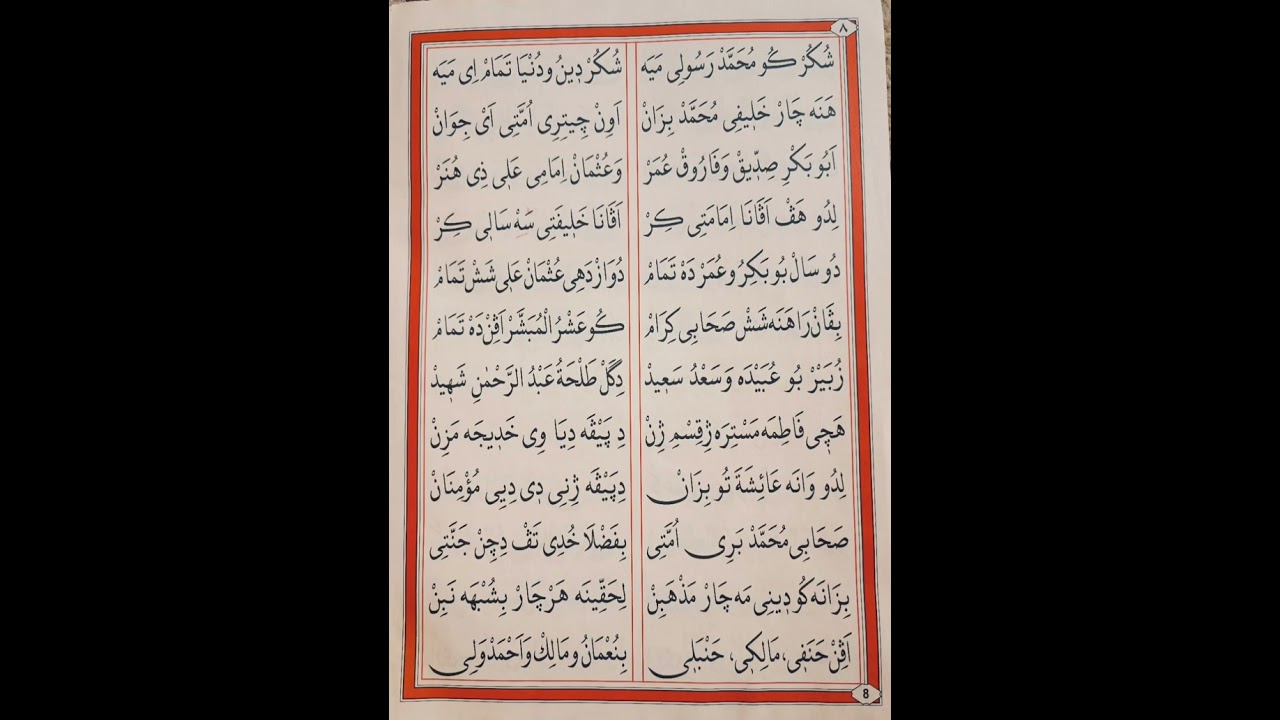 ٨
شُكُرْ كُو مُحَمَّدْ رَسُولِى مَيَه شُكُرْ دٖينُ ودُنْيَا تَمَامْ اِى مَيَه
هَنَه چَارْ خَلٖيفِى مُحَمَّدْ بِزَانْ اَوِنْ چِيتِرِى اُمَّتِى اَىْ جِوَانْ
اَبُو بَكْرِ صِدّٖيقْ وَفَارُوقْ عُمَرْ وَعُثْمَانْ اِمَامِى عَلٖى ذِى هُنَرْ
لِدُو هَڤْ اَڤَانَا اِمَامَتِى كِرْ اَڤَانَا خَلٖيفَتِى سَهْ سَالٖى كِرْ
دُو سَالْ بُو بَكِرُ وعُمَرْ دَهْ تَمَامْ دُوَازْدَهِى عُثْمَانْ عَلٖى شَشْ تَمَامْ
بِڤَانْ رَا هَنَه شَشْ صَحَابِى كِرَامْ كُو عَشْرُ الْمُبَشَّرْ اَڤِنْ دَهْ تَمَامْ
زُبَيْرْ بُو عُبَيْدَه وَسَعْدُ سَعٖيدْ دِگَلْ طَلْحَةُ عَبْدُ الرَّحْمٰنِ شَهٖيدْ
هَچٖى فَاطِمَه مَسْتِرَه ژِقِسْمِ ژِنْ دِ پَيْڤَه دِيَا وِى خَدٖيجَه مَزِنْ
لِدُو وَانَه عَائِشَةَ تُو بِزَانْ دِپَيْڤَه ژِنِى دٖى دِيِى مُؤْمِنَانْ
صَحَابِى مُحَمَّدْ بَرِى اُمَّتِى بِفَضْلَا خُدِى تَڤْ دِچِنْ جَنَّتِى
بِزَانَه كُو دٖينِى مَه چَارْ مَذْهَبِنْ لِحَقّٖينَه هَرْ چَارْ بِشُبْهَه نَبِنْ
اَڤِنْ حَنَفٖى، مَالِكٖى، حَنْبَلٖى بِنُعْمَانُ ومَالِكْ وَاَحْمَدْ وَلٖى
8